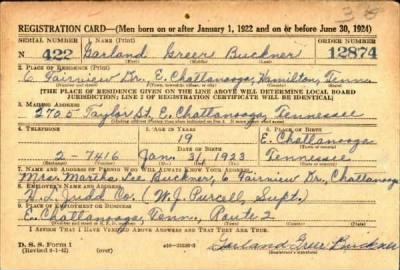 REGISTRATION CARD—(Men born on or after January 1, 1922 and on or before June 30, 1924)
SERIAL NUMBER 1. NAME (Print) ORDER NUMBER
N 422 Garland Greer Buckner 12874
(First) (Middle) (Last)
2. PLACE OF RESIDENCE (Print)
6 Fairview Dr., E. Chattanooga, Hamilton, Tenn.
[THE PLACE OF RESIDENCE GIVEN ON THE LINE ABOVE WILL DETERMINE LOCAL BOARD
JURISDICTION; LINE 2 OF REGISTRATION CERTIFICATE WILL BE IDENTICAL]
3. MAILING ADDRESS
2705 Taylor St. E. Chattanooga, Tennessee
4. TELEPHONE 5. AGE IN YEARS 6. PLACE OF BIRTH
19 E. Chattanooga
DATE OF BIRTH
2 7416 Jan. 31, 1923 Tennessee
7. NAME AND ADDRESS OF PERSON WHO WILL ALWAYS KNOW YOUR ADDRESS
Mrs. Martha Lee Buckner, 6 Fairview Dr., Chattanooga
8. EMPLOYER'S NAME AND ADDRESS
H. L. Judd Co. (W. J. Purcell, Supt.)
9. PLACE OF EMPLOYMENT OR BUSINESS
E. Chattanooga, Tenn., Route 2
I AFFIRM THAT I HAVE VERIFIED ABOVE ANSWERS AND THAT THEY ARE TRUE.
D. S. S. Form 1
(Revised 6-1-42)
Garland Greer Buckner
(Registrant's signature)